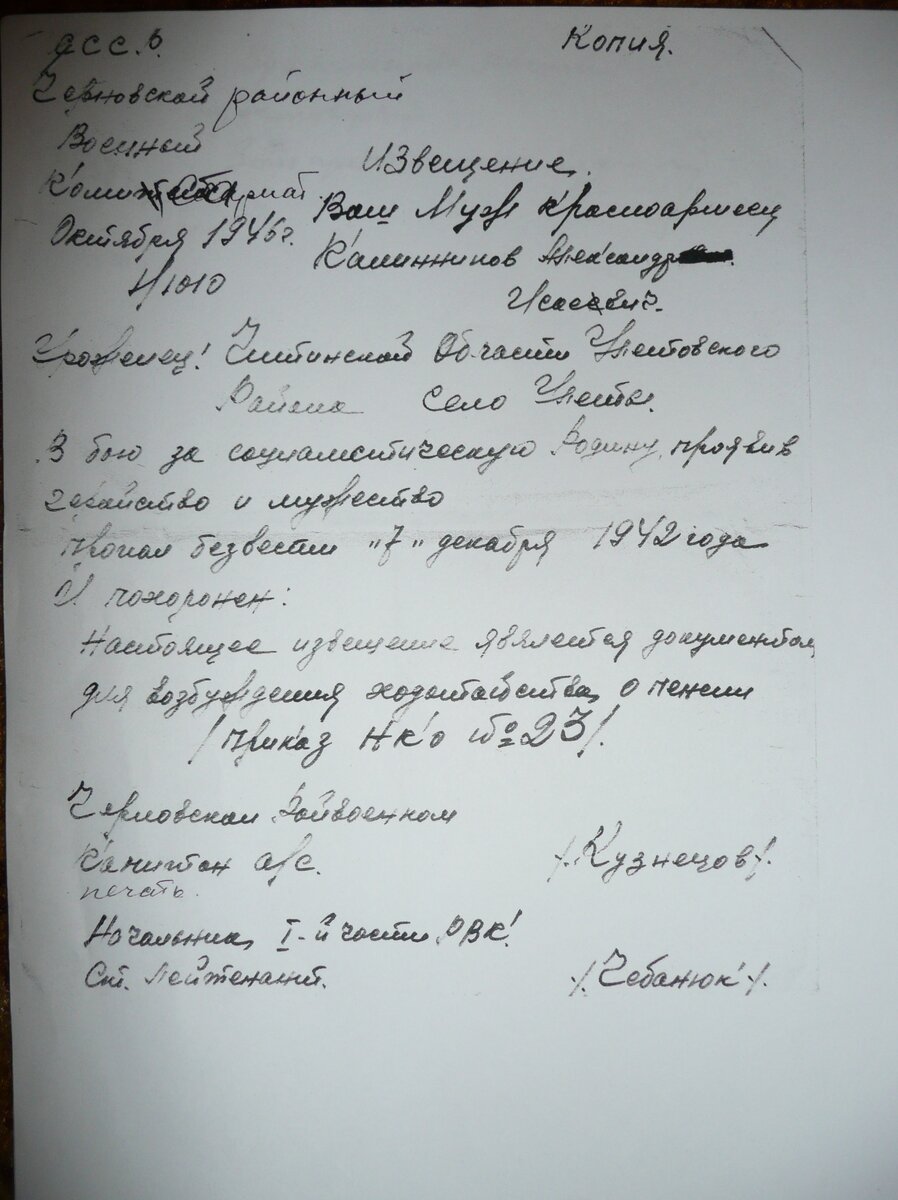 Копия.
Черновской районный
Военный
Извещение.
Ваш Муж красноармеец
Октября 1946г.
Калинников Александр
Исаевич.
Уроженец! Читинской Области Улетовского
Района Село Улеты.
В бою за социалистическую Родину, проявив
геройство и мужество
пропал безвести „7„ декабря 1942 года
И похоронен:
Настоящее извещение является документом
для возбуждения ходатайства о пенсии
/приказ НКО №23/.
Черновской Райвоенком
Капитан а/с. /Кузнецов/.
печать.
Начальник I-й части РВК!
Ст. Лейтенант. /Чебанюк/.